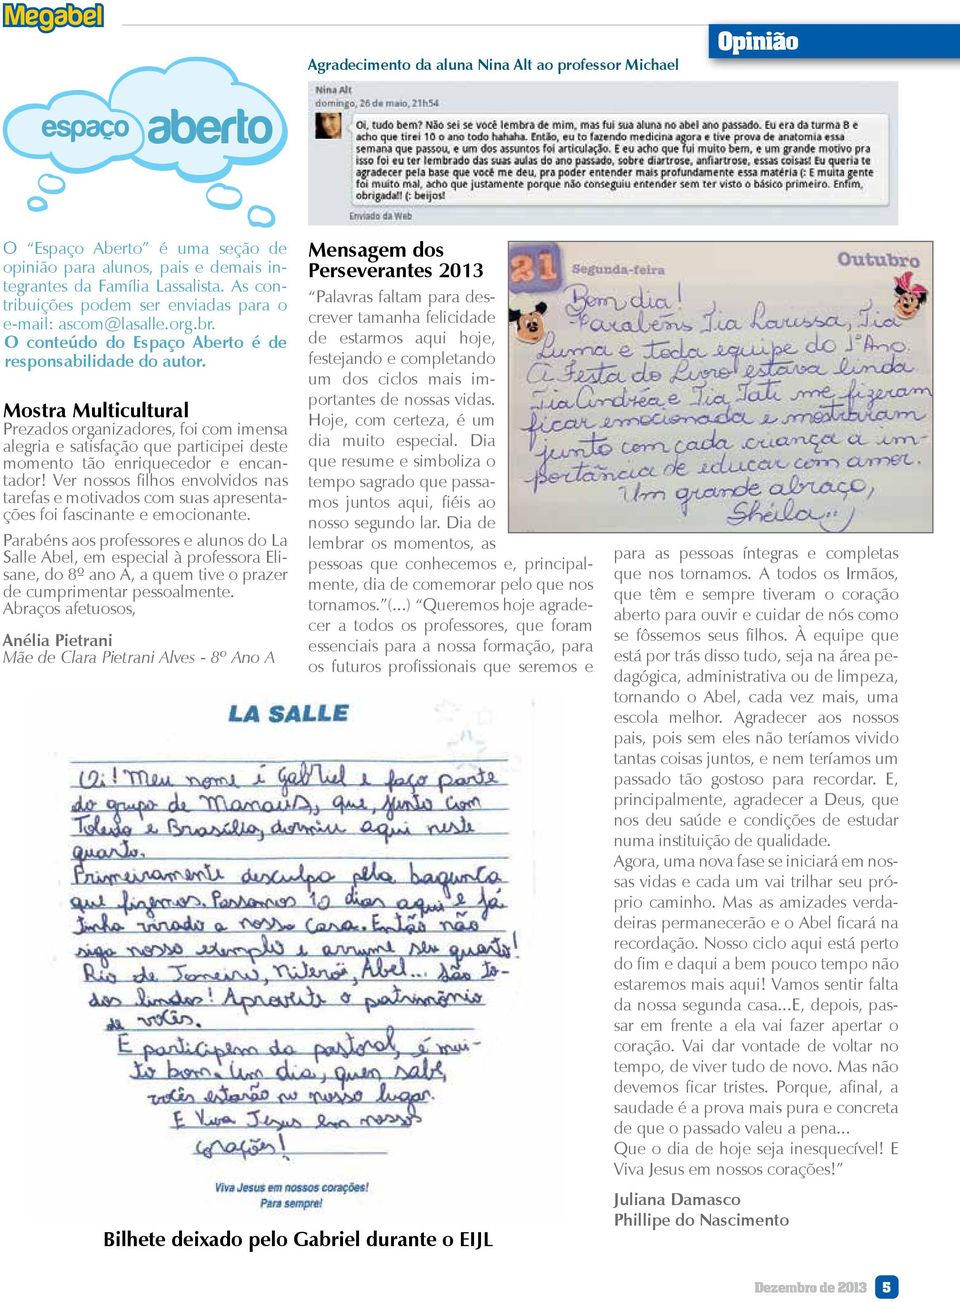 Megabel
Opinião
espaço aberto
Agradecimento da aluna Nina Alt ao professor Michael
Nina Alt
domingo, 26 de maio, 21h54
Oi, tudo bem? Não sei se você lembra de mim, mas fui sua aluna no abel ano passado. Eu era da turma B e
acho que tirei 10 o ano todo hahaha. Então, eu to fazendo medicina agora e tive prova de anatomia essa
semana que passou, e um dos assuntos foi articulação. E eu acho que fui muito bem, e um grande motivo pra
isso foi eu ter lembrado das suas aulas do ano passado, sobre diartrose, anfiartrose, essas coisas! Eu queria te
agradecer pela base que você me deu, pra poder entender mais profundamente essa matéria (: E muita gente
foi muito mal, acho que justamente porque não conseguiu entender sem ter visto o básico primeiro. Enfim,
obrigada!! (: beijos!
Enviado da Web
O “Espaço Aberto” é uma seção de
opinião para alunos, pais e demais in-
tegrantes da Família Lassalista. As con-
tribuições podem ser enviadas para o
e-mail: ascom@lasalle.org.br.
O conteúdo do Espaço Aberto é de
responsabilidade do autor.
Mostra Multicultural
Prezados organizadores, foi com imensa
alegria e satisfação que participei deste
momento tão enriquecedor e encan-
tador! Ver nossos filhos envolvidos nas
tarefas e motivados com suas apresenta-
ções foi fascinante e emocionante.
Parabéns aos professores e alunos do La
Salle Abel, em especial à professora Eli-
sane, do 8º ano A, a quem tive o prazer
de cumprimentar pessoalmente.
Abraços afetuosos,
Anélia Pietrani
Mãe de Clara Pietrani Alves - 8º Ano A
Mensagem dos
Perseverantes 2013
“Palavras faltam para des-
crever tamanha felicidade
de estarmos aqui hoje,
festejando e completando
um dos ciclos mais im-
portantes de nossas vidas.
Hoje, com certeza, é um
dia muito especial. Dia
que resume e simboliza o
tempo sagrado que passa-
mos juntos aqui, fiéis ao
nosso segundo lar. Dia de
lembrar os momentos, as
pessoas que conhecemos e, principal-
mente, dia de comemorar pelo que nos
tornamos. (...) Queremos hoje agrade-
cer a todos os professores, que foram
essenciais para a nossa formação, para
os futuros profissionais que seremos e
21 Segunda-feira Outubro
Bom dia!
Parabéns Tia Larissa, Tia
Luma e toda equipe do 1º Ano.
A Festa do Livro estava linda
Tia Andrea e Tia Tati me fizeram
ficar emocionada e mostraram
junto com cada criança a im-
portância de educar com amor.
Um grande abraço,
Sheila ;)
para as pessoas íntegras e completas
que nos tornamos. A todos os Irmãos,
que têm e sempre tiveram o coração
aberto para ouvir e cuidar de nós como
se fôssemos seus filhos. À equipe que
está por trás disso tudo, seja na área pe-
dagógica, administrativa ou de limpeza,
tornando o Abel, cada vez mais, uma
escola melhor. Agradecer aos nossos
pais, pois sem eles não teríamos vivido
tantas coisas juntos, e nem teríamos um
passado tão gostoso para recordar. E,
principalmente, agradecer a Deus, que
nos deu saúde e condições de estudar
numa instituição de qualidade.
Agora, uma nova fase se iniciará em nos-
sas vidas e cada um vai trilhar seu pró-
prio caminho. Mas as amizades verda-
deiras permanecerão e o Abel ficará na
recordação. Nosso ciclo aqui está perto
do fim e daqui a bem pouco tempo não
estaremos mais aqui! Vamos sentir falta
da nossa segunda casa...E, depois, pas-
sar em frente a ela vai fazer apertar o
coração. Vai dar vontade de voltar no
tempo, de viver tudo de novo. Mas não
devemos ficar tristes. Porque, afinal, a
saudade é a prova mais pura e concreta
de que o passado valeu a pena...
Que o dia de hoje seja inesquecível! E
Viva Jesus em nossos corações!”
Juliana Damasco
Phillipe do Nascimento
LA SALLE
Oi! Meu nome é Gabriel e faço parte
do grupo de Manaus, que, junto com
Toledo e Brasília, dormiu aqui neste
quarto.
Primeiramente desculpa pela bagunça
que fizemos. Passamos 10 dias aqui e já
tinha virado a nossa Casa. Então não
siga nosso exemplo e arrume seu quarto!
Rio de Janeiro, Niterói, Abel... são to-
dos lindos! Aproveite o patrimônio
de vocês.
E participem da pastoral, é mui-
to bom. Um dia, quem sabe,
vocês estarão no nosso lugar.
E Viva Jesus em nossos
corações!
Viva Jesus em nossos corações!
Para sempre!
Bilhete deixado pelo Gabriel durante o EIJL
Dezembro de 2013 5